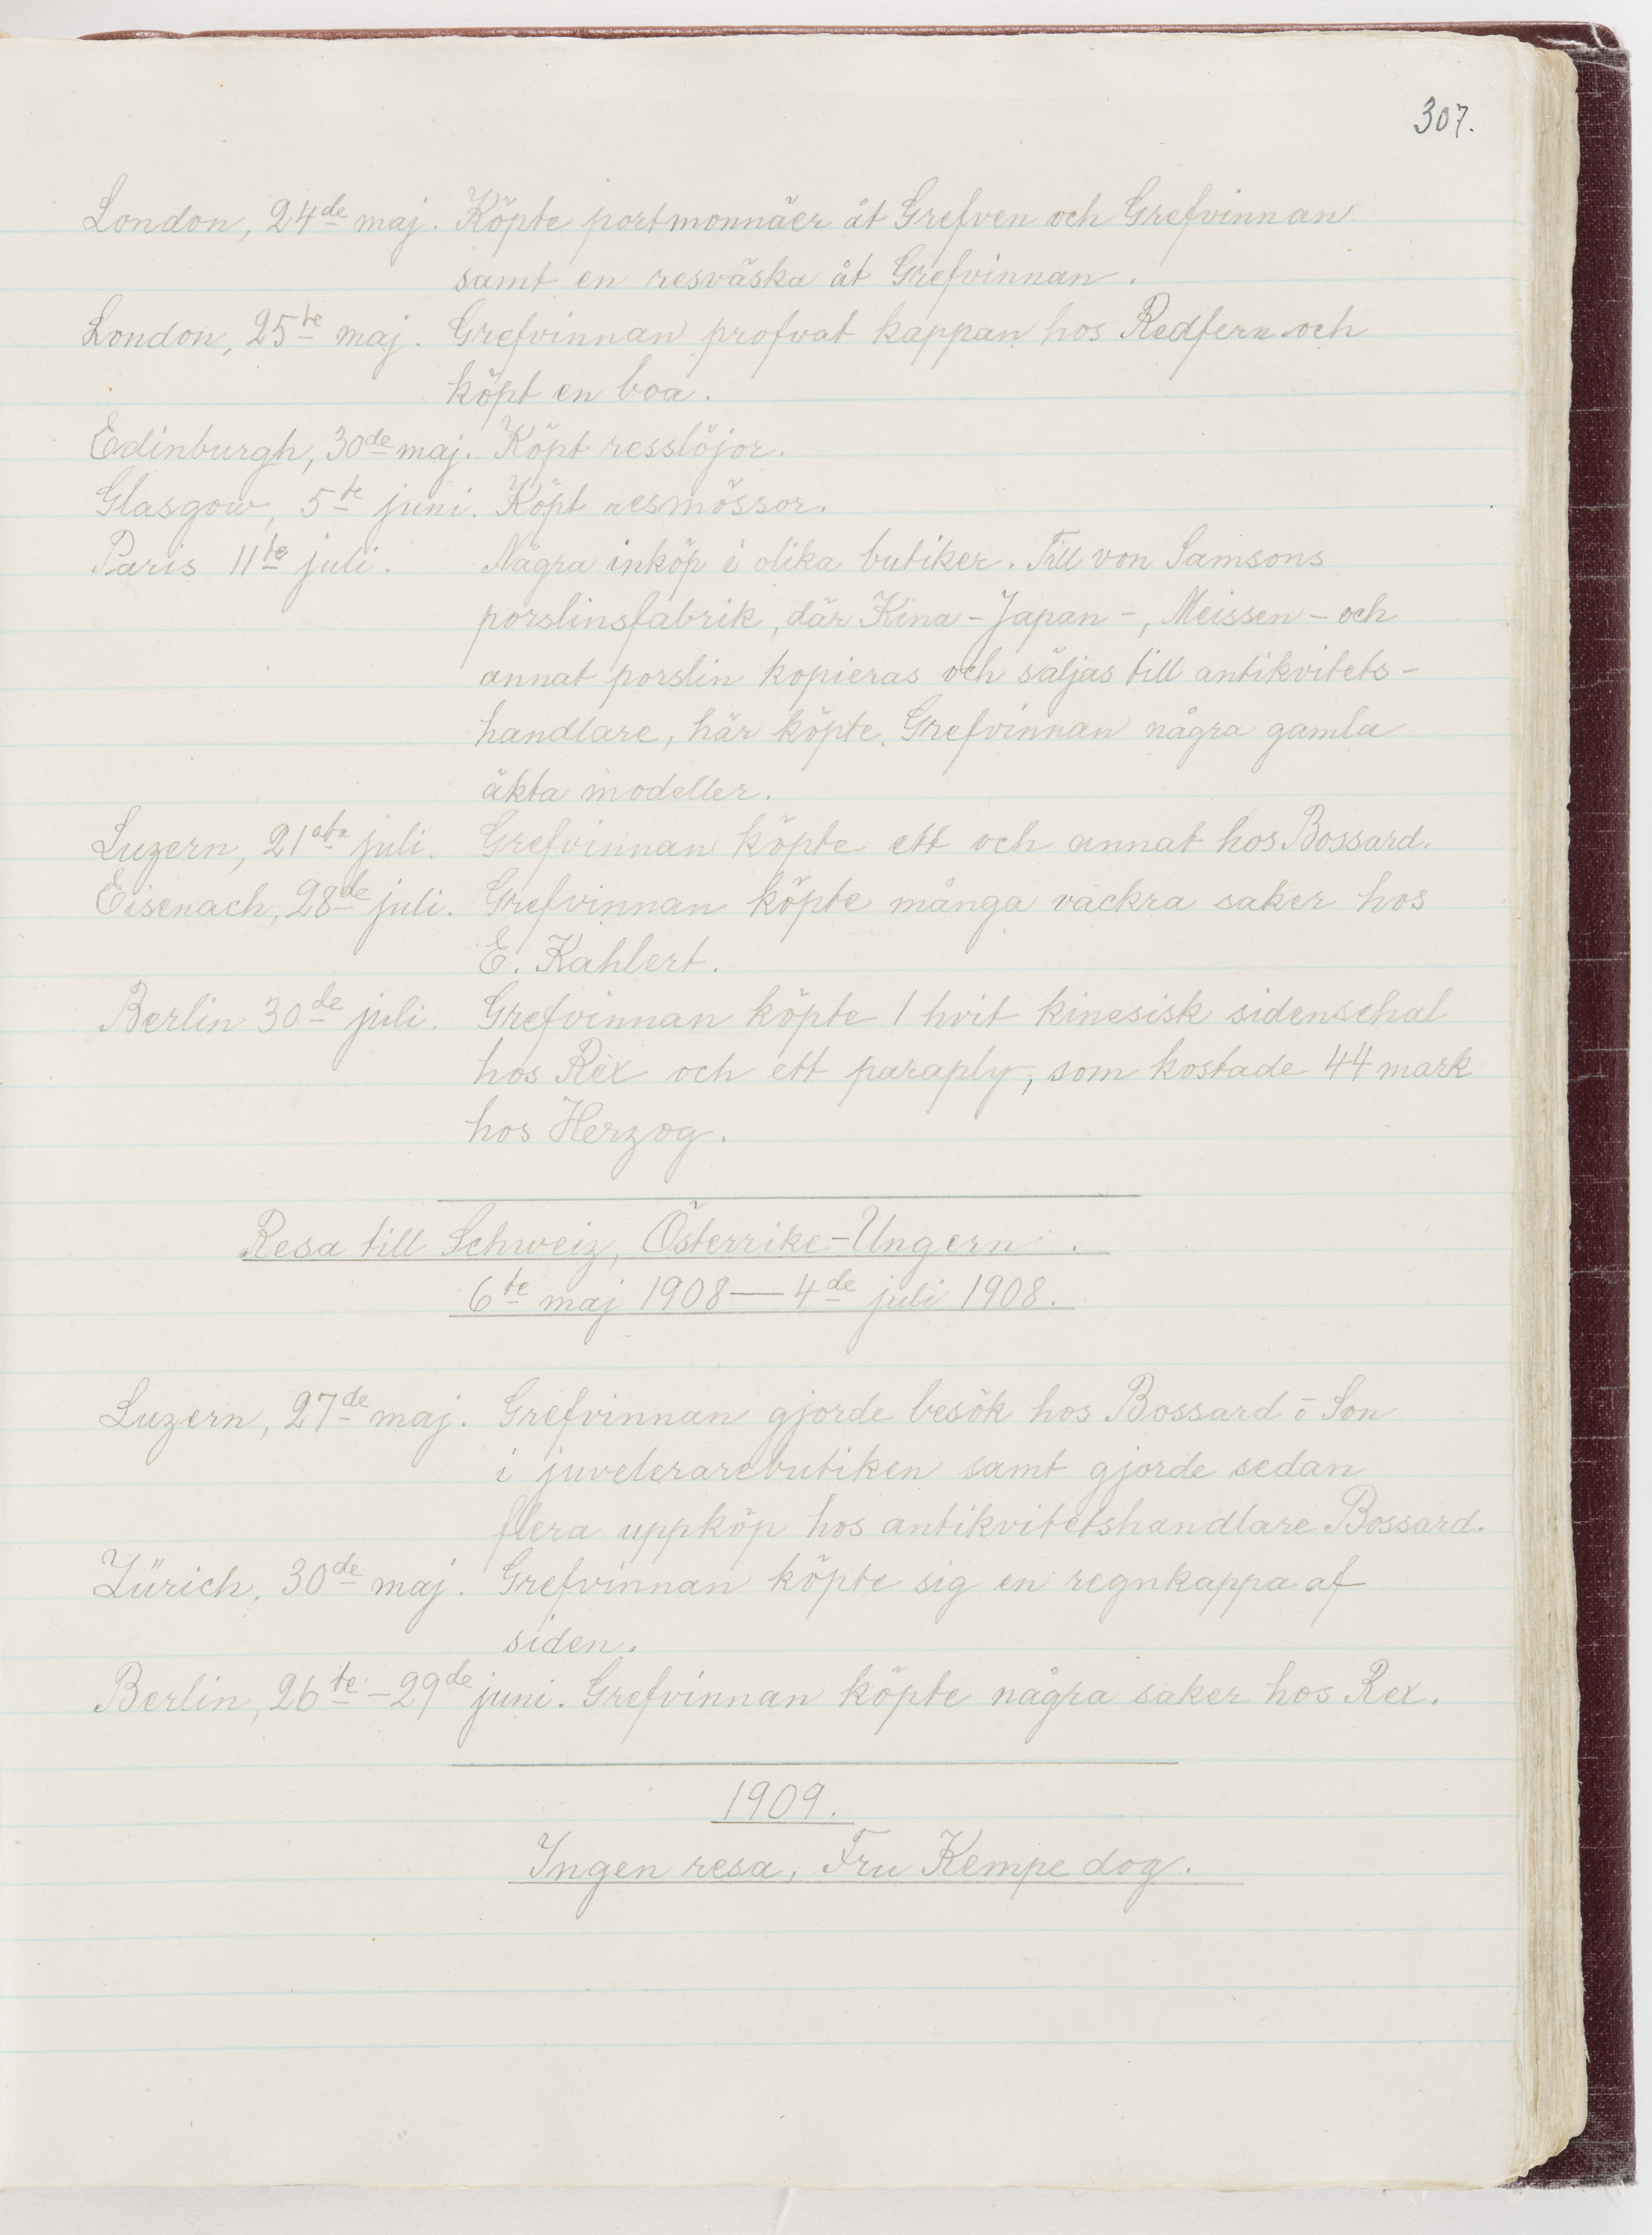 307.
London, 24de maj. Köpte portmonnäer åt Grefven och Grefvinnan
samt en resväska åt Grefvinnan.
London, 25te maj. Grefvinnan profvat kappan hos Redfern och
köpt en boa.
Edinburgh, 30de maj. Köpt resslöjor.
Glasgow, 5te juni. Köpt resmössor.
Paris 11te juli. Några inköp i olika butiker. Till von Samsons
porslinsfabrik, där Kina-Japan-, Meissen- och
annat porslin kopieras och säljas till antikvitets-
handlare, här köpte Grefvinnan några gamla
äkta modeller.
Luzern, 21sta juli. Grefvinnan köpte ett och annat hos Bossard.
Eisenach, 28de juli. Grefvinnan köpte många vackra saker hos
E. Kahlert.
Berlin 30de juli. Grefvinnan köpte 1 hvit kinesisk sidenschal
hos Rex och ett paraply, som kostade 44 mark
hos Herzog.
Resa till Schweiz, Österrike-Ungern.
6te maj 1908—4de juli 1908.
Luzern, 27de maj. Grefvinnan gjorde besök hos Bossard ō Son
i juvelerarebutiken samt gjorde sedan
flera uppköp hos antikvitetshandlare Bossard.
Zürich, 30de maj. Grefvinnan köpte sig en regnkappa af
siden.
Berlin, 26te-29de juni. Grefvinnan köpte några saker hos Rex.
1909.
Ingen resa, Fru Kempe dog.